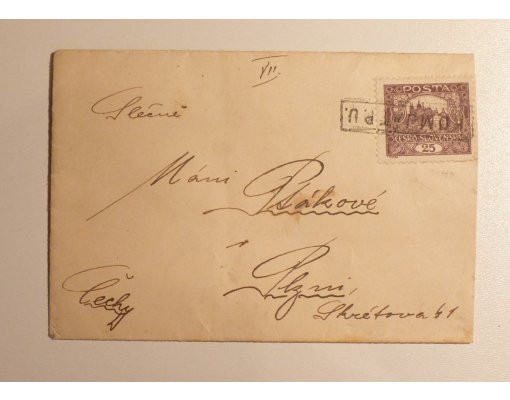 VII.
POŠTA
ČESKO-SLOVENSKÁ
25
Slečně
Máni Ptákové
v
Plzni,
Škrétova 41
Čechy